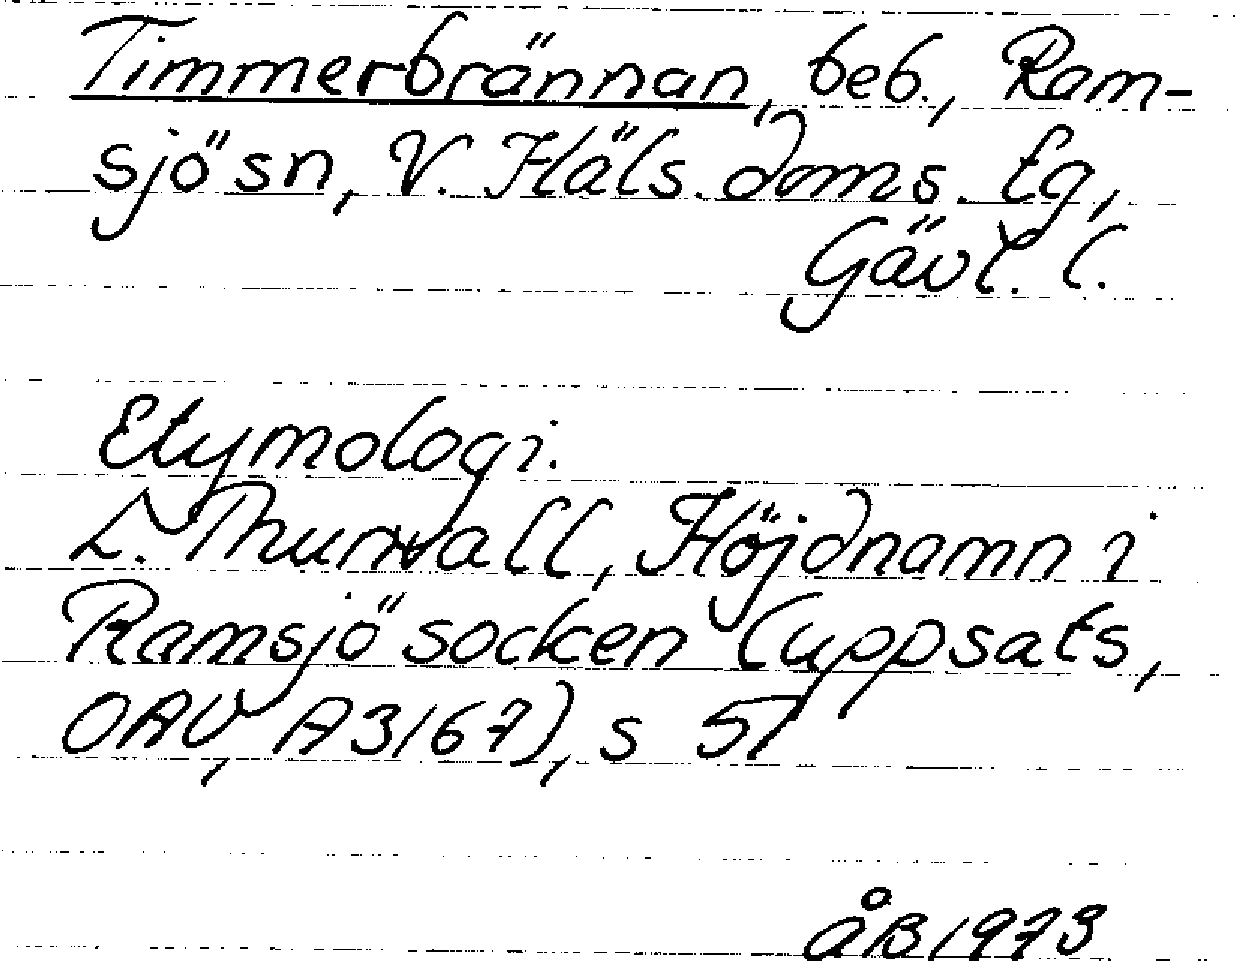 Timmerbrännan, beb., Ram-
sjö sn, V. Häls. doms. tg,
Gävl. l.
Etymologi.
L. Thunvall, Höjdnamn i
Ramsjö socken (uppsats,
OAU, A3167), s 51
åB 1973